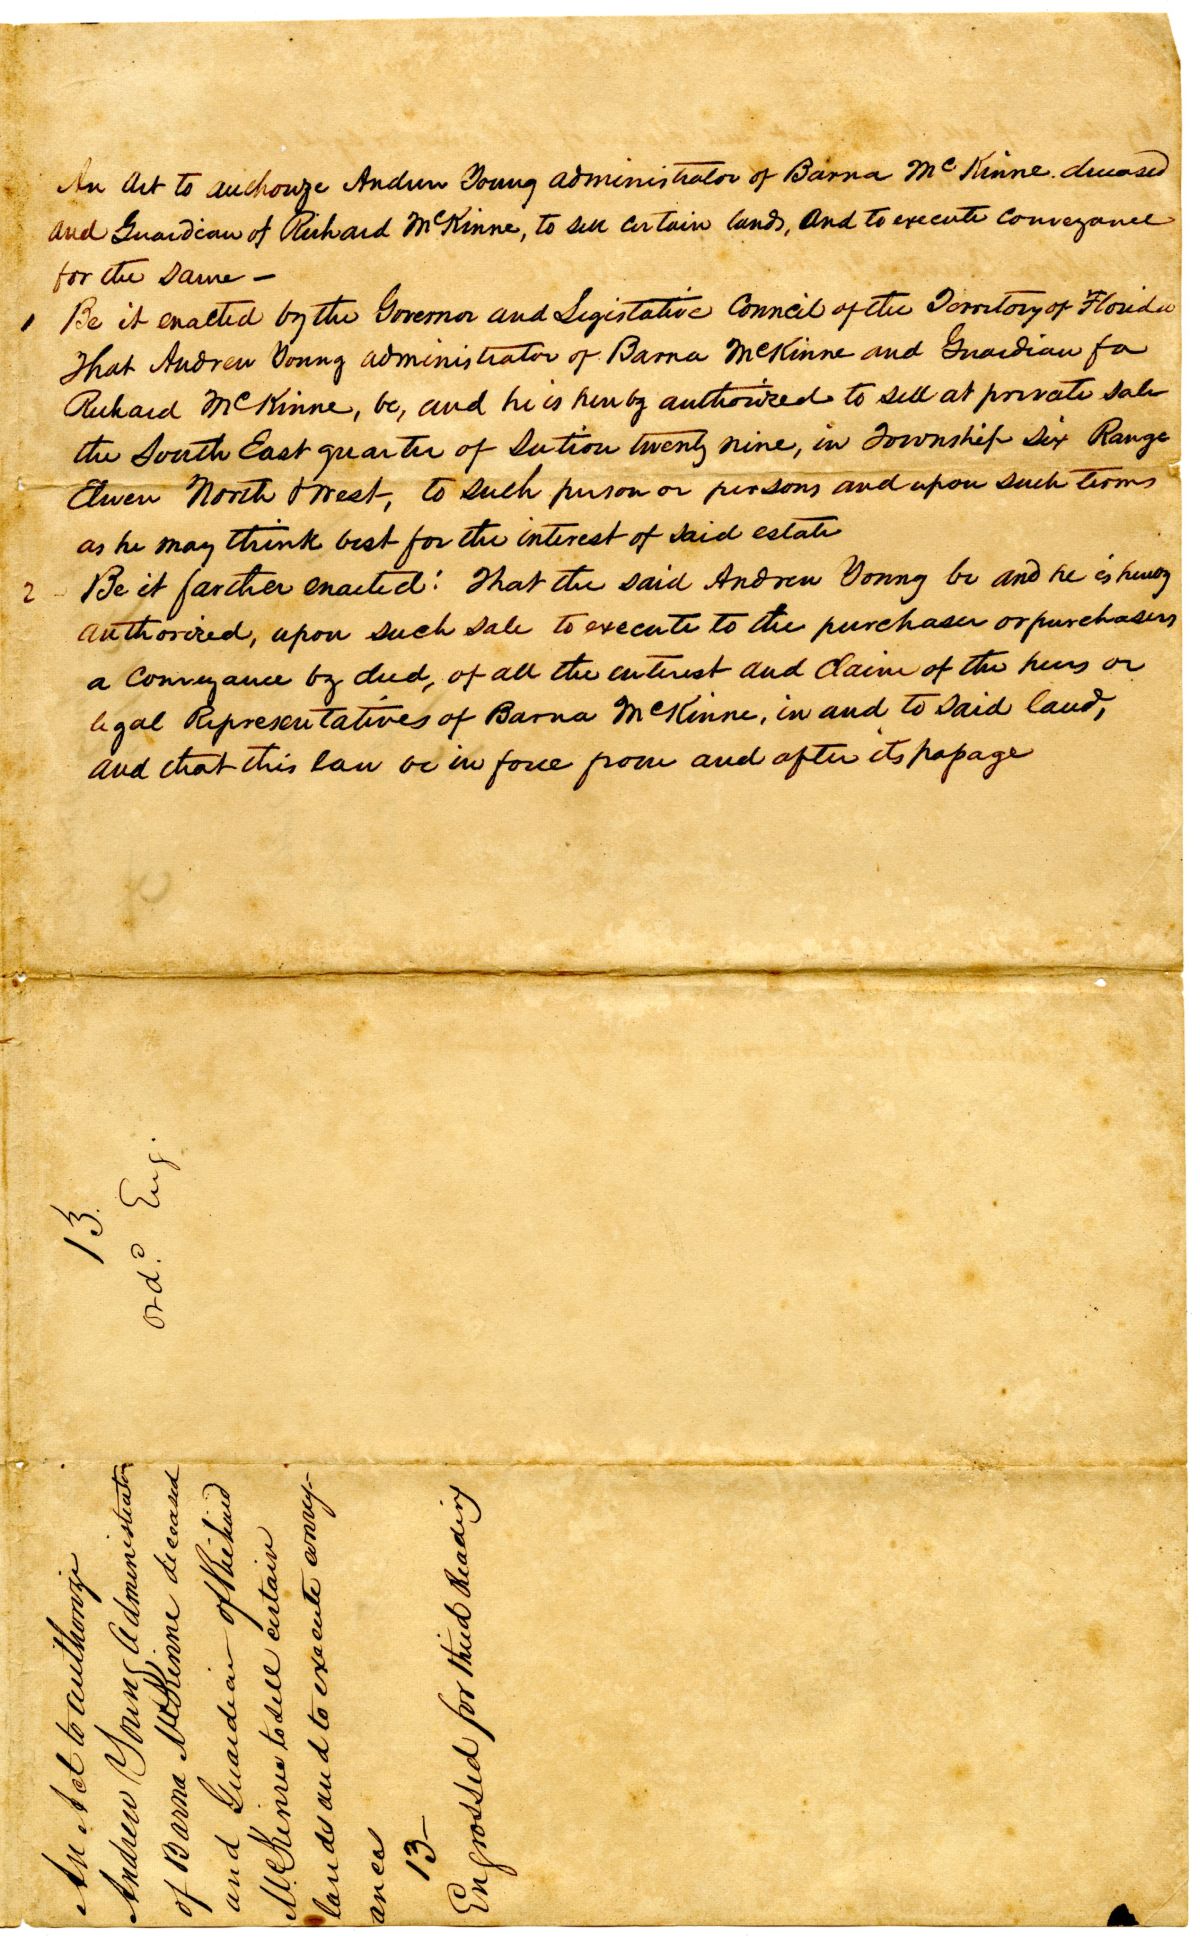 An Act to authorize Andrew Young administrator of Barna McKinne deceased
and Guardian of Richard McKinne, to sell certain lands, and to execute conveyance
for the same —
1 Be it enacted by the Governor and Legistative Council of the Territory of Florida
That Andrew Young administrator of Barna McKinne and Guardian for
Richard McKinne, be, and he is hereby authorized to sell at private sale
the South East quarter of Section twenty nine, in Township Six Range
Eleven North & West, to such person or persons and upon such terms
as he may think best for the interest of said estate
2 - Be it farther enacted: That the said Andrew Young be and he is hereby
authorized, upon such sale to execute to the purchaser or purchasers
a conveyance by deed, of all the interest and claim of the heirs or
legal Representatives of Barna McKinne, in and to said land,
and that this law be in force from and after its passage
13.
ord. Eng.
An Act to authorize
Andrew Young Administrator
of Barna McKinne deceased
and Guardian of Richard
McKinne to sell certain
lands and to execute convey-
ances
13—
Engrossed for third Reading